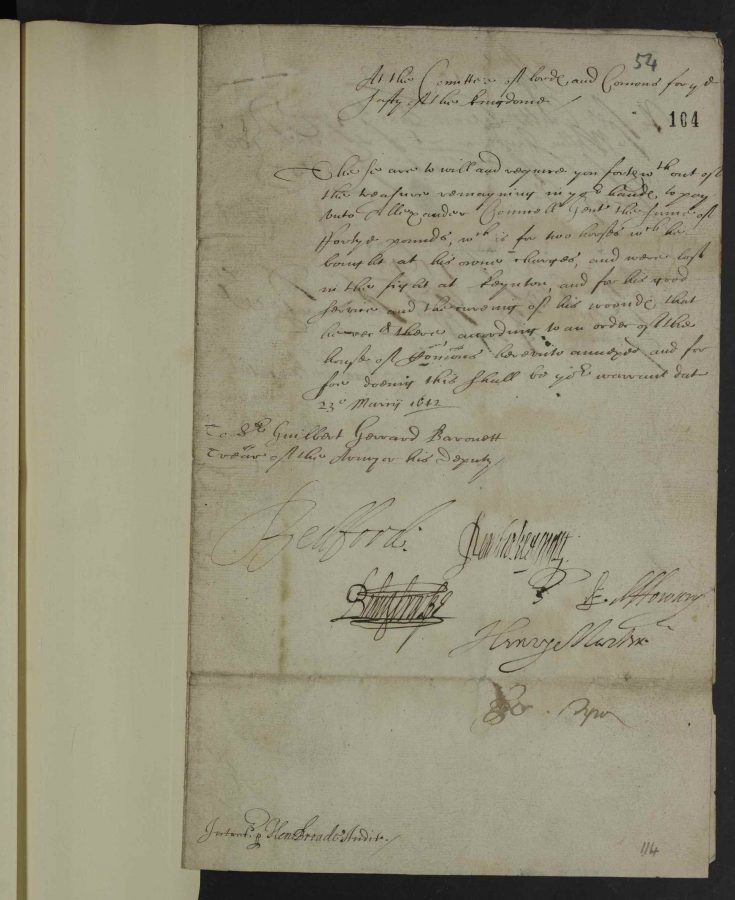 54
At the Comittee of lords and Comons for ye
safty of the kingdome
164
These are to will and require you forthwth out of
the treasure remayning in yor hands to pay
unto Allexander Connell gent the sume of
Fortye pounds, wch is for two horses wch he
bought at his owne charges, and were lost
in the fight at Keynton, and for his good
service and the cureing of his wounds that
he recd there according to an order of the
house of Comons hereunto annexed and for
soe doeing this shall be yor warrant dat
23o Marcij 1642
To Sr Guilbert Gerrard Baronett
Trear of the Army or his Deputy
Bedford:
Northumberland
Bolingbroke
E. Howard
Henry Marten
Jo: Pym
Intrat p Hen Broade Audit.
114